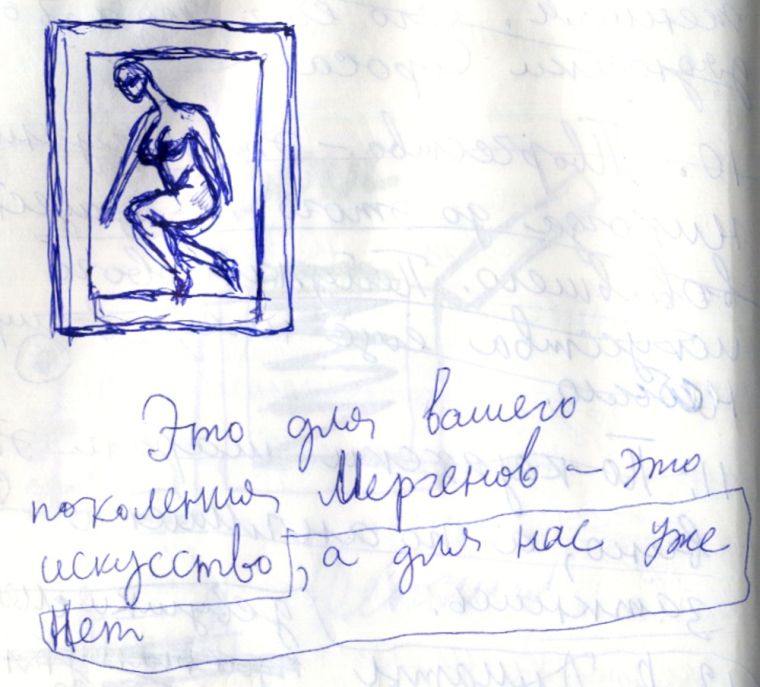 Это для вашего
поколения Мергенов – это
искусство, а для нас уже
Нет